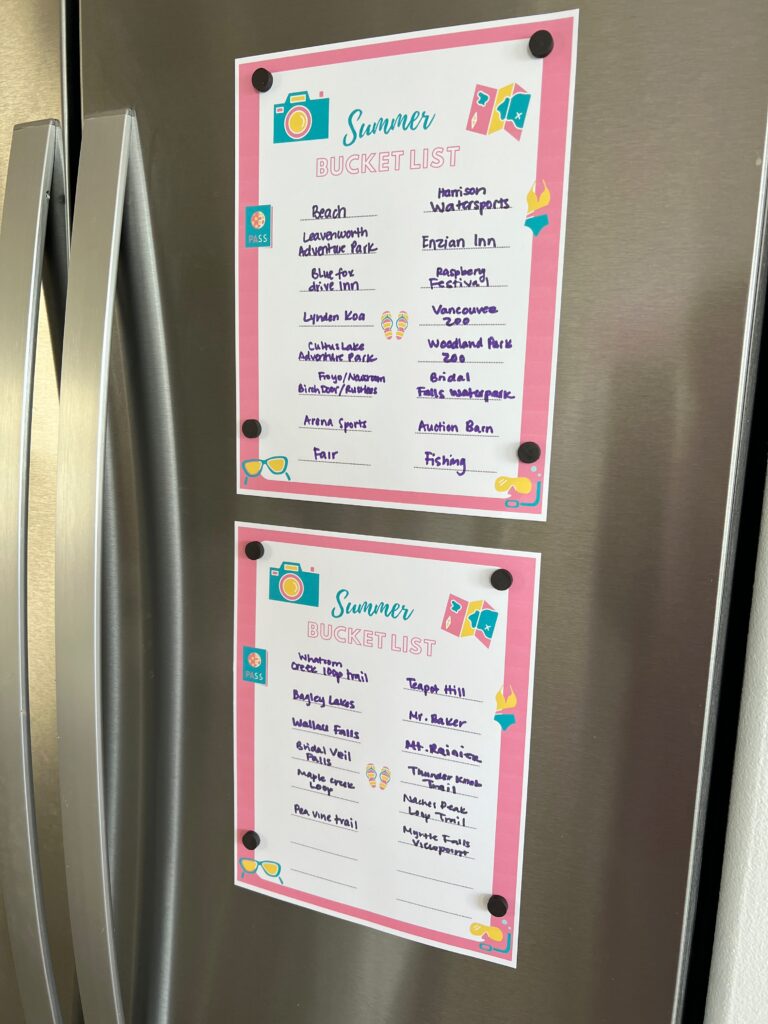 Summer
BUCKET LIST
PASS
Beach
Leavenworth
Adventure Park
Blue fox
drive Inn
Lynden Koa
Cultus Lake
Adventure Park
Froyo/
Birch Door/Rustlers
Arena Sports
Fair
Harrison
Watersports
Enzian Inn
Raspberry
Festival
Vancouver
Zoo
Woodland Park
Zoo
Bridal
Falls Waterpark
Auction Barn
Fishing
Summer
BUCKET LIST
PASS
Whatcom
Creek loop trail
Bagley Lakes
Wallau Falls
Bridal Veil
Falls
Maple Creek
Loop
Pea vine trail
Teapot Hill
Mr. Baker
Mt. Rainier
Thunder Knob
Trail
Naches Peak
Loop Trail
Myrtle Falls
Viewpoint